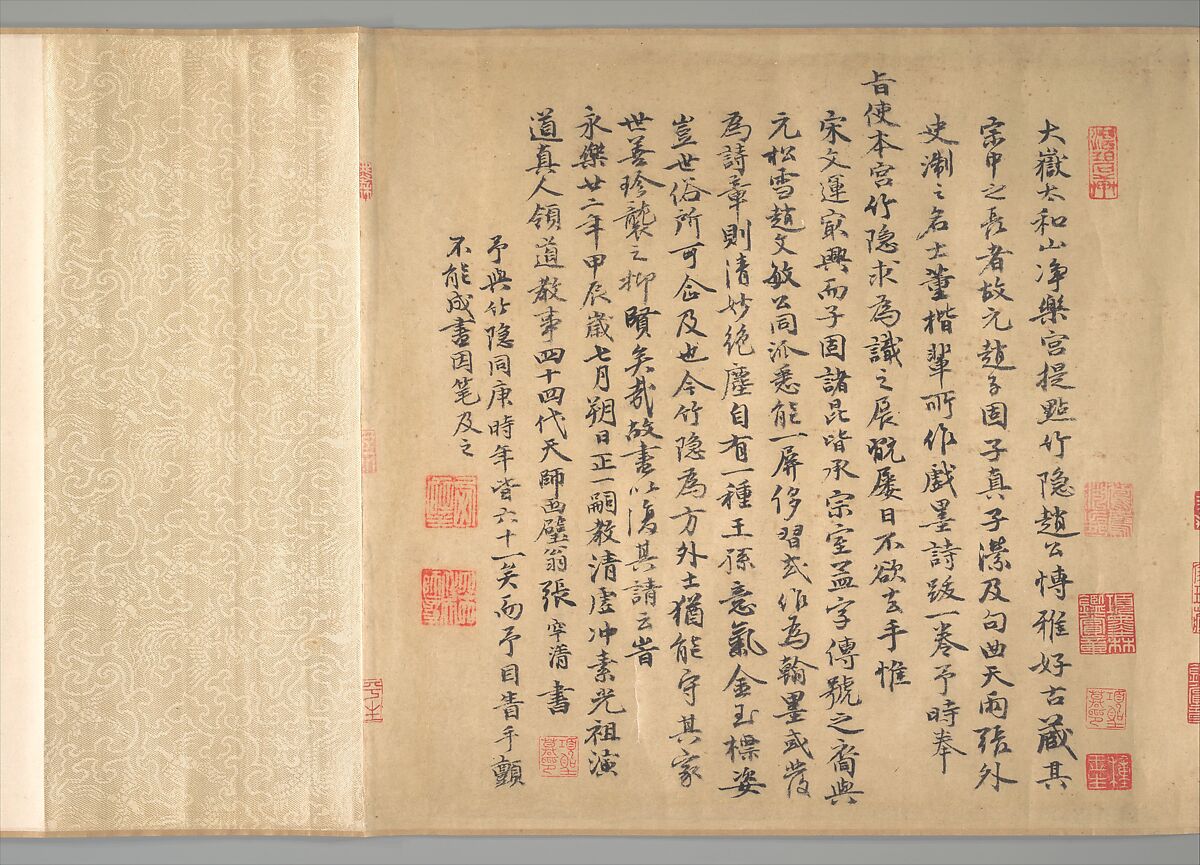 大嶽太和山净樂宮提點竹隐趙公愽雅好古藏其
宗中之長者故元趙子固子真子濚及句曲天雨張外
史淛之名士董楷輩所作戲墨詩跋一卷予時奉
旨使本宫竹隐求為識之展翫屡日不欲去手惟
宋文運㝡興而子固諸昆皆承宗室孟字傳號之裔與
元松雪趙文敏公同泒悉能一屏侈習或作為翰墨或發
為詩章則清妙絶塵自有一種王孫意氣金玉標姿
豈世俗所可企及也今竹隐為方外士猶能守其家
世善珍襲之抑賢矣哉故書以復其請云旹
永樂廿二年甲辰歲七月朔日正一嗣教清虚冲素光祖演
道真人領道教事四十四代天師西壁翁張宇清書
予與竹隐同庚時年皆六十一矣而予目眚手顫
不能成書因笔及之
項墨林鑑賞章